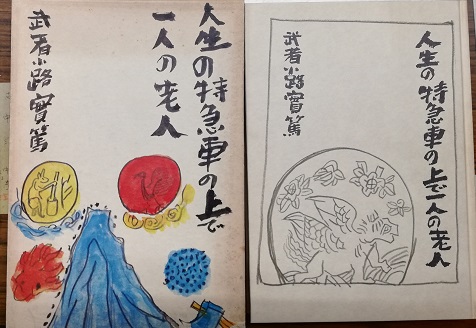 人生の特急車の上で
一人の老人
武者小路實篤
人生の特急車の上で一人の老人
武者小路實篤